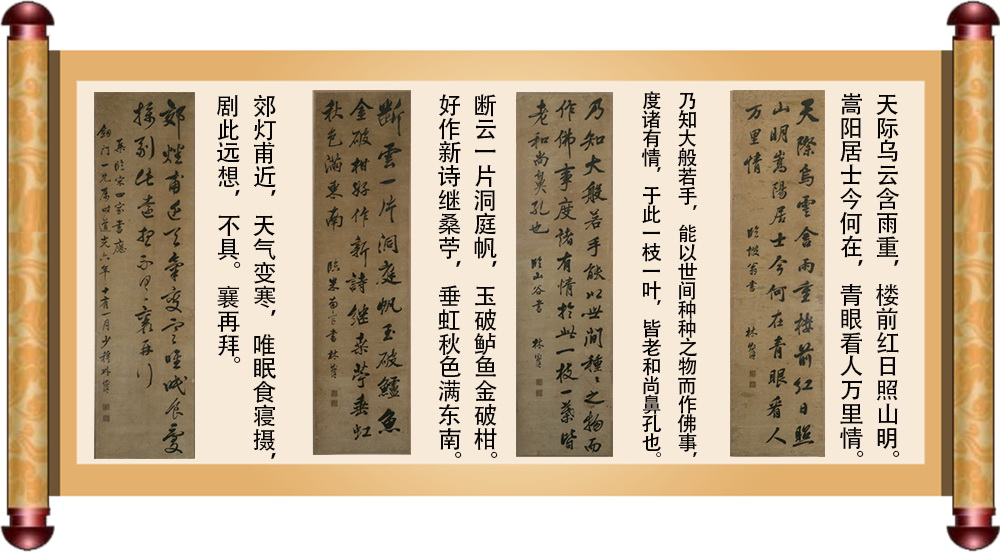 天际乌云含雨重，楼前红日照山明。
嵩阳居士今何在，青眼看人万里情。
天際烏雲含雨重樓前紅日照
山明嵩陽居士今何在青眼看人
万里情
臨坡翁書 林
乃知大般若手，能以世间种种之物而作佛事，
度诸有情，于此一枝一叶，皆老和尚鼻孔也。
乃知大般若手能以世間種之物而
作佛事度諸有情於此一枝一葉皆
老和尚鼻孔也
臨山谷書 林
断云一片洞庭帆，玉破鲈鱼金破柑。
好作新诗继桑苧，垂虹秋色满东南。
斷雲一片洞庭帆玉破鱸魚
金破柑好作新詩繼桑苧垂虹
秋色滿東南
臨米南宮書 林
郊灯甫近，天气变寒，唯眠食寝摄，
剧此远想，不具。襄再拜。
郊燈甫近天氣變寒唯眠食寢
攝劇此遠想不具襄再
集臨宋四家書應
劍門一兄屬時道光六年十有一月少穆林